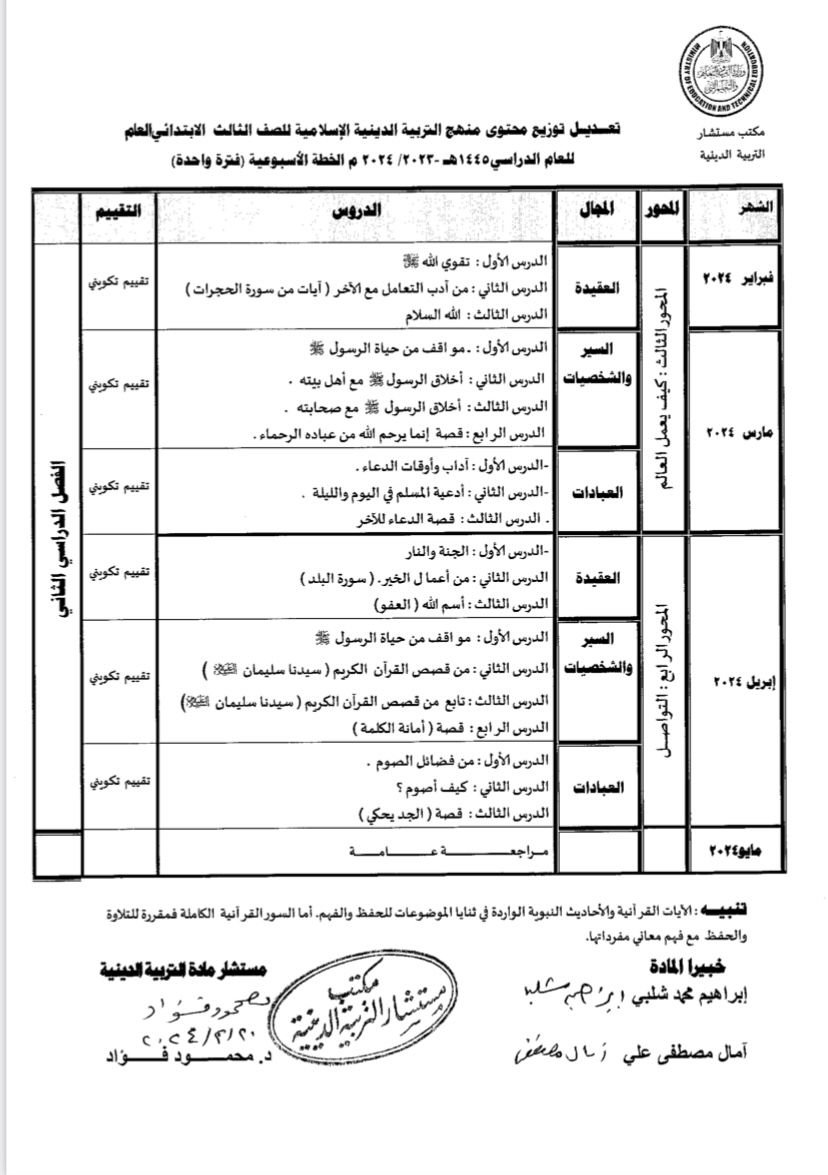 MINISTRY OF EDUCATION AND TECHNICAL EDUCATION
مكتب مستشار
التربية الدينية
تعـديـل توزيع محتوى منهج التربية الدينية الإسلامية للصف الثالث الابتدائي العام
للعام الدراسي ١٤٤٥هـ -٢٠٢٣/ ٢٠٢٤ م الخطة الأسبوعية (فترة واحدة)
الشهر
المحور
المجال
الدروس
التقييم
فبراير ٢٠٢٤
المحور الثالث : كيف يعمل العالم
العقيدة
الدرس الأول : تقوي الله ﷺ
الدرس الثاني : من أدب التعامل مع الآخر ( آيات من سورة الحجرات )
الدرس الثالث : الله السلام
تقييم تكويني
الفصل الدراسي الثاني
مارس ٢٠٢٤
السير
والشخصيات
الدرس الأول : . مو اقف من حياة الرسول ﷺ
الدرس الثاني : أخلاق الرسول ﷺ مع أهل بيته .
الدرس الثالث : أخلاق الرسول ﷺ مع صحابته .
الدرس الرابع : قصة إنما يرحم الله من عباده الرحماء .
تقييم تكويني
العبادات
-الدرس الأول : آداب وأوقات الدعاء .
-الدرس الثاني : أدعية المسلم في اليوم والليلة .
. الدرس الثالث : قصة الدعاء للآخر
تقييم تكويني
إبريل ٢٠٢٤
المحور الرابع : التواصل
العقيدة
-الدرس الأول : الجنة والنار
الدرس الثاني : من أعما ل الخير . ( سورة البلد )
الدرس الثالث : أسم الله ( العفو )
تقييم تكويني
السير
والشخصيات
الدرس الأول : مو اقف من حياة الرسول ﷺ
الدرس الثاني : من قصص القرآن الكريم ( سيدنا سليمان )
الدرس الثالث : تابع من قصص القرآن الكريم ( سيدنا سليمان )
الدرس الرابع : قصة ( أمانة الكلمة )
تقييم تكويني
العبادات
الدرس الأول : من فضائل الصوم .
الدرس الثاني : كيف أصوم ؟
الدرس الثالث : قصة ( الجد يحكي )
تقييم تكويني
مايو٢٠٢٤
مـراجعــــة عــامــــة
تنبيــه : الآيات القرآنية والأحاديث النبوية الواردة في ثنايا الموضوعات للحفظ والفهم. أما السور القرآنية الكاملة فمقررة للتلاوة
والحفظ مع فهم معاني مفرداتها.
خبيرا المادة
إبراهيم محمد شلبي إبراهيم شلبي
آمال مصطفى علي آمال مصطفى
مكتب
مستشار التربية الدينية
مستشار مادة التربية الدينية
محمود فؤاد
٢٠٢٤/٢/٢٠
د. محمـــود فـــؤاد